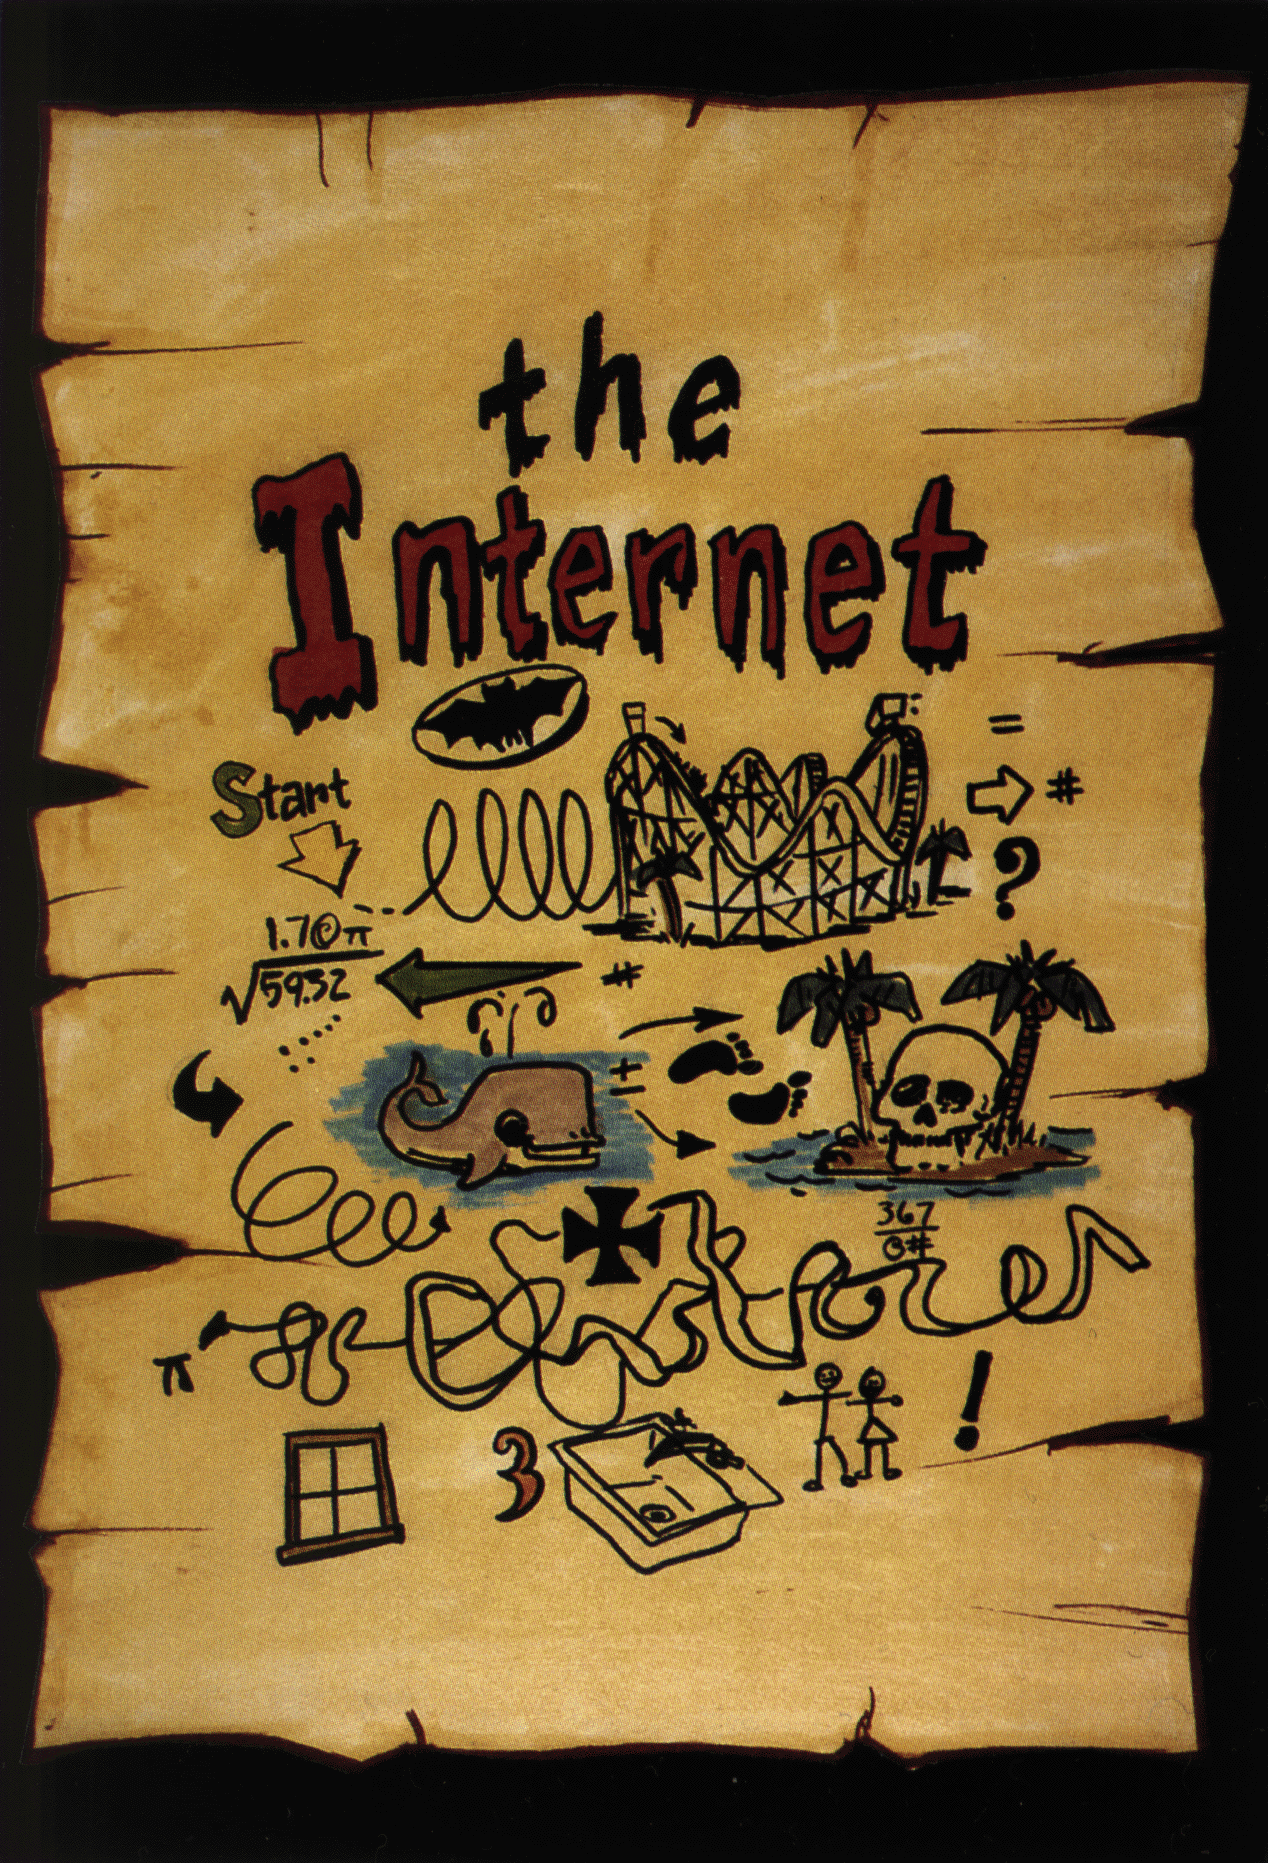 the
Internet
Start
=
#
?
1.7@π
√59.32
#
±
367
@#
π
3
!